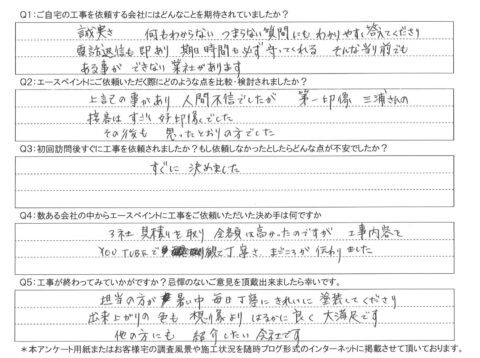 Q1：ご自宅の工事を依頼する会社にはどんなことを期待されていましたか？
誠実さ 何もわからない つまらない質問にも わかりやすく答えてくださり
電話返信も即あり 期日時間も必ず守ってくれる そんな当り前でも
ある事が できない業社があります
Q2：エースペイントにご依頼いただく際にどのような点を比較・検討されましたか？
上記の事があり 人間不信でしたが 第一印像 三浦さんの
接客は すごく 好印像でした
その後も 思ったとおりの方でした
Q3：初回訪問後すぐに工事を依頼されましたか？もし依頼しなかったとしたらどんな点が不安でしたか？
すぐに 決めました
Q4：数ある会社の中からエースペイントに工事をご依頼いただいた決め手は何ですか
3社 見積りを取り 金額は高かったのですが 工事内容を
YOU TUBEで 観て丁寧さ、まごころが 伝わりました
Q5：工事が終わってみていかがですか？忌憚のないご意見を頂戴出来ましたら幸いです。
担当の方が 暑い中 毎日丁寧に きれいに 塗装してくださり
出来上がりの 色も 想像より はるかに良く 大満足です
他の方にも 紹介したい会社です
＊本アンケート用紙またはお客様宅の調査風景や施工状況を随時ブログ形式のインターネットに掲載させて頂いております。